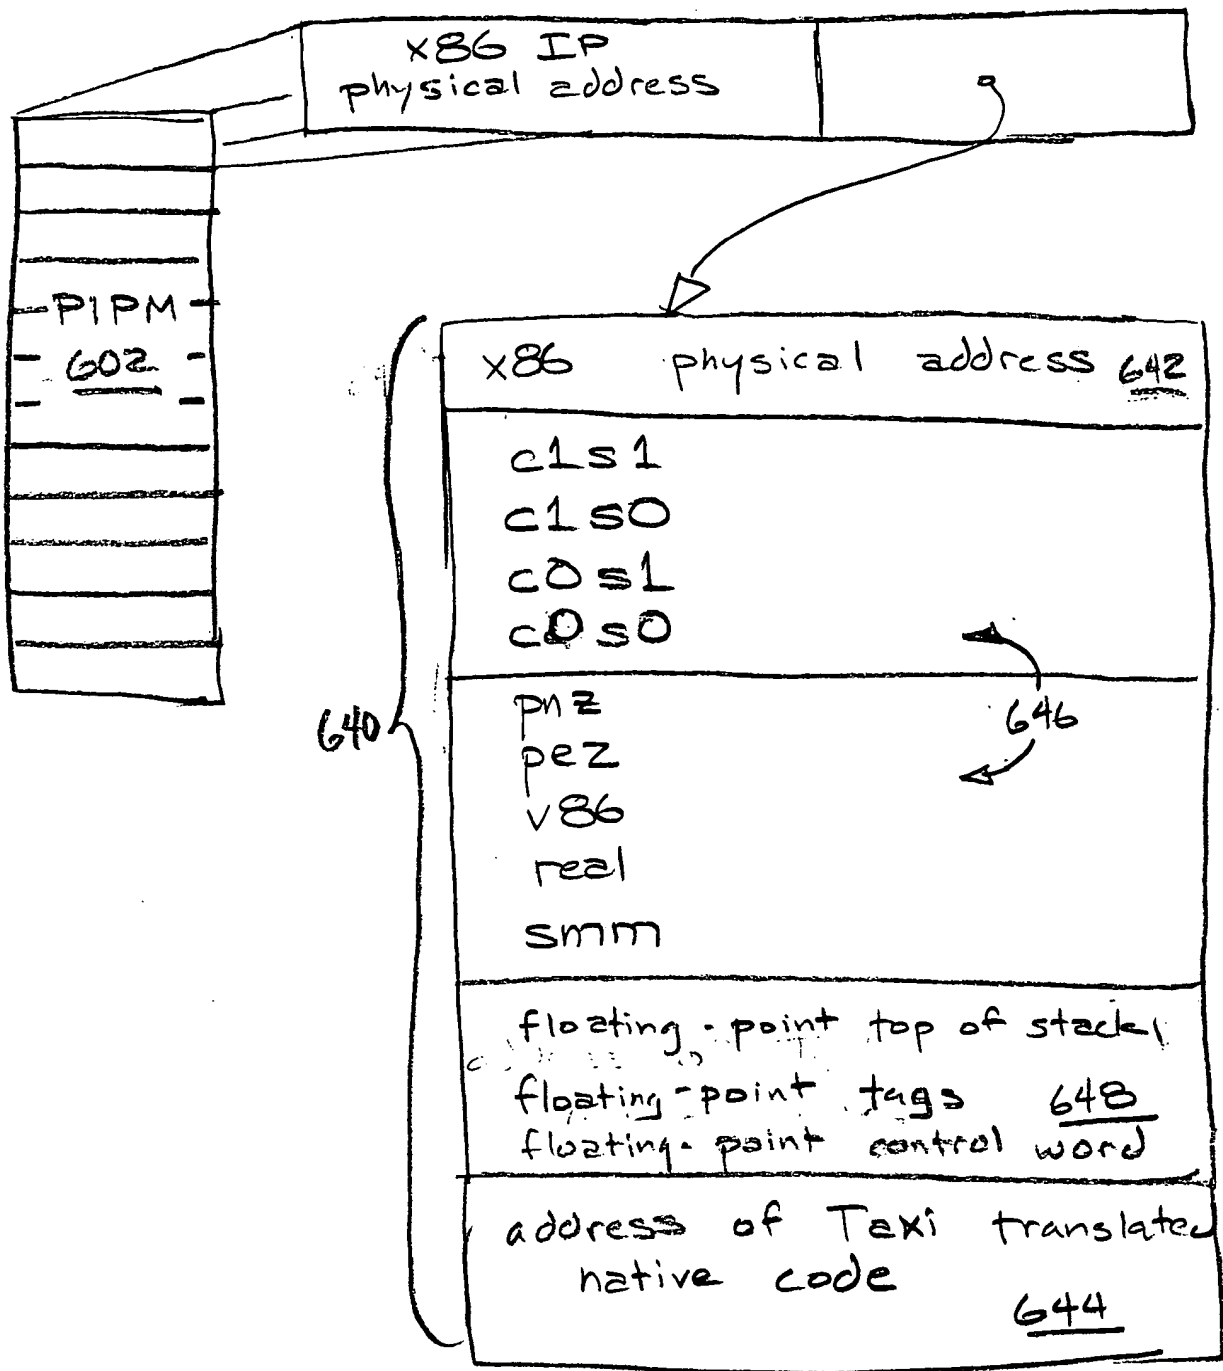 x86 IP
physical address
PIPM
602
x86 physical address 642
c1s1
c1s0
c0s1
c0s0
646
pnz
pez
v86
real
smm
640
floating-point top of stack
floating-point tags 648
floating-point control word
address of Taxi translated
native code
644